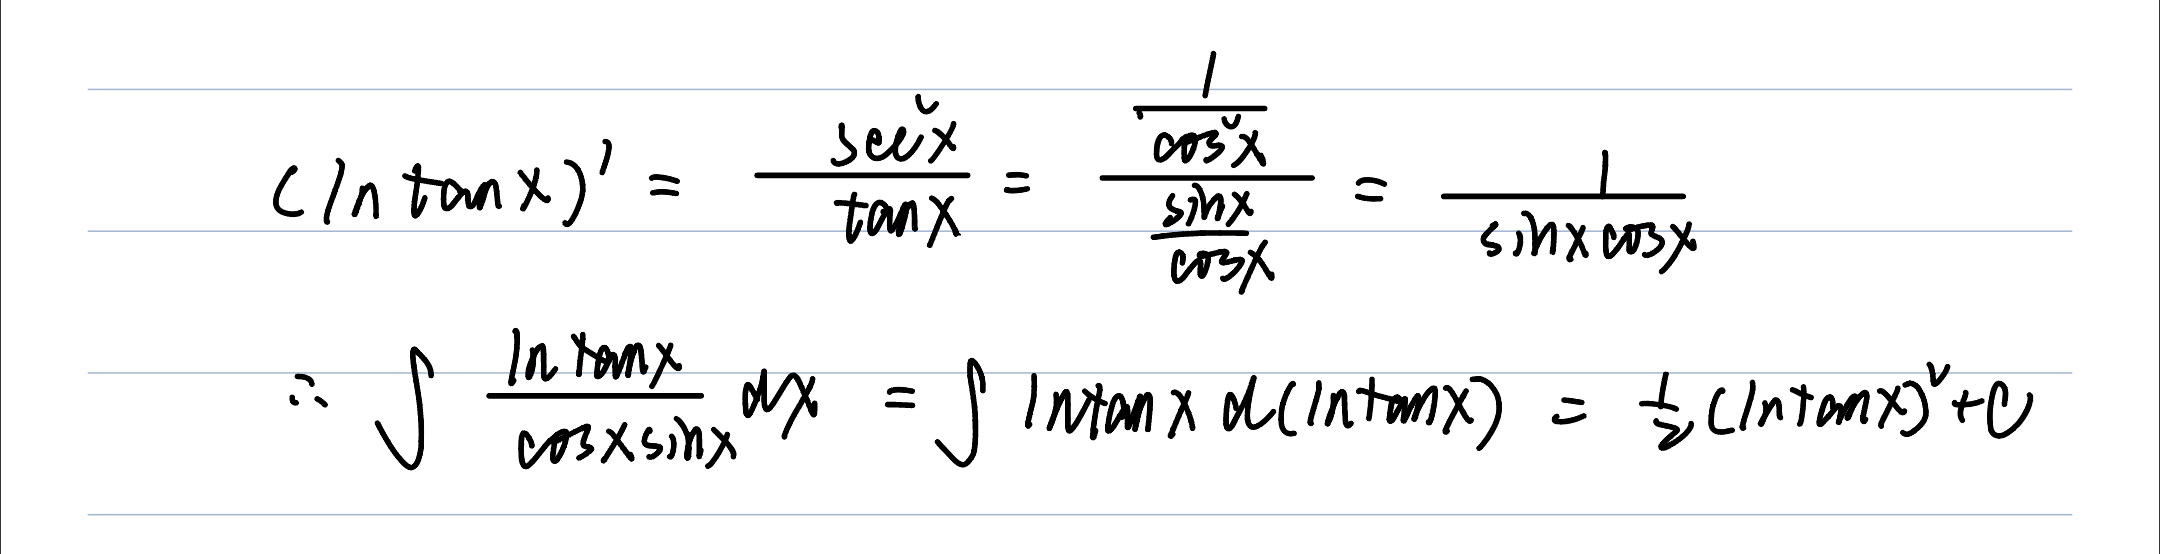 (ln tan x)' = \frac{sec²x}{tan x} = \frac{\frac{1}{cos²x}}{\frac{sin x}{cos x}} = \frac{1}{sin x cos x}
∴ ∫ \frac{ln tan x}{cos x sin x} dx = ∫ ln tan x d(ln tan x) = \frac{1}{2} (ln tan x)² + C